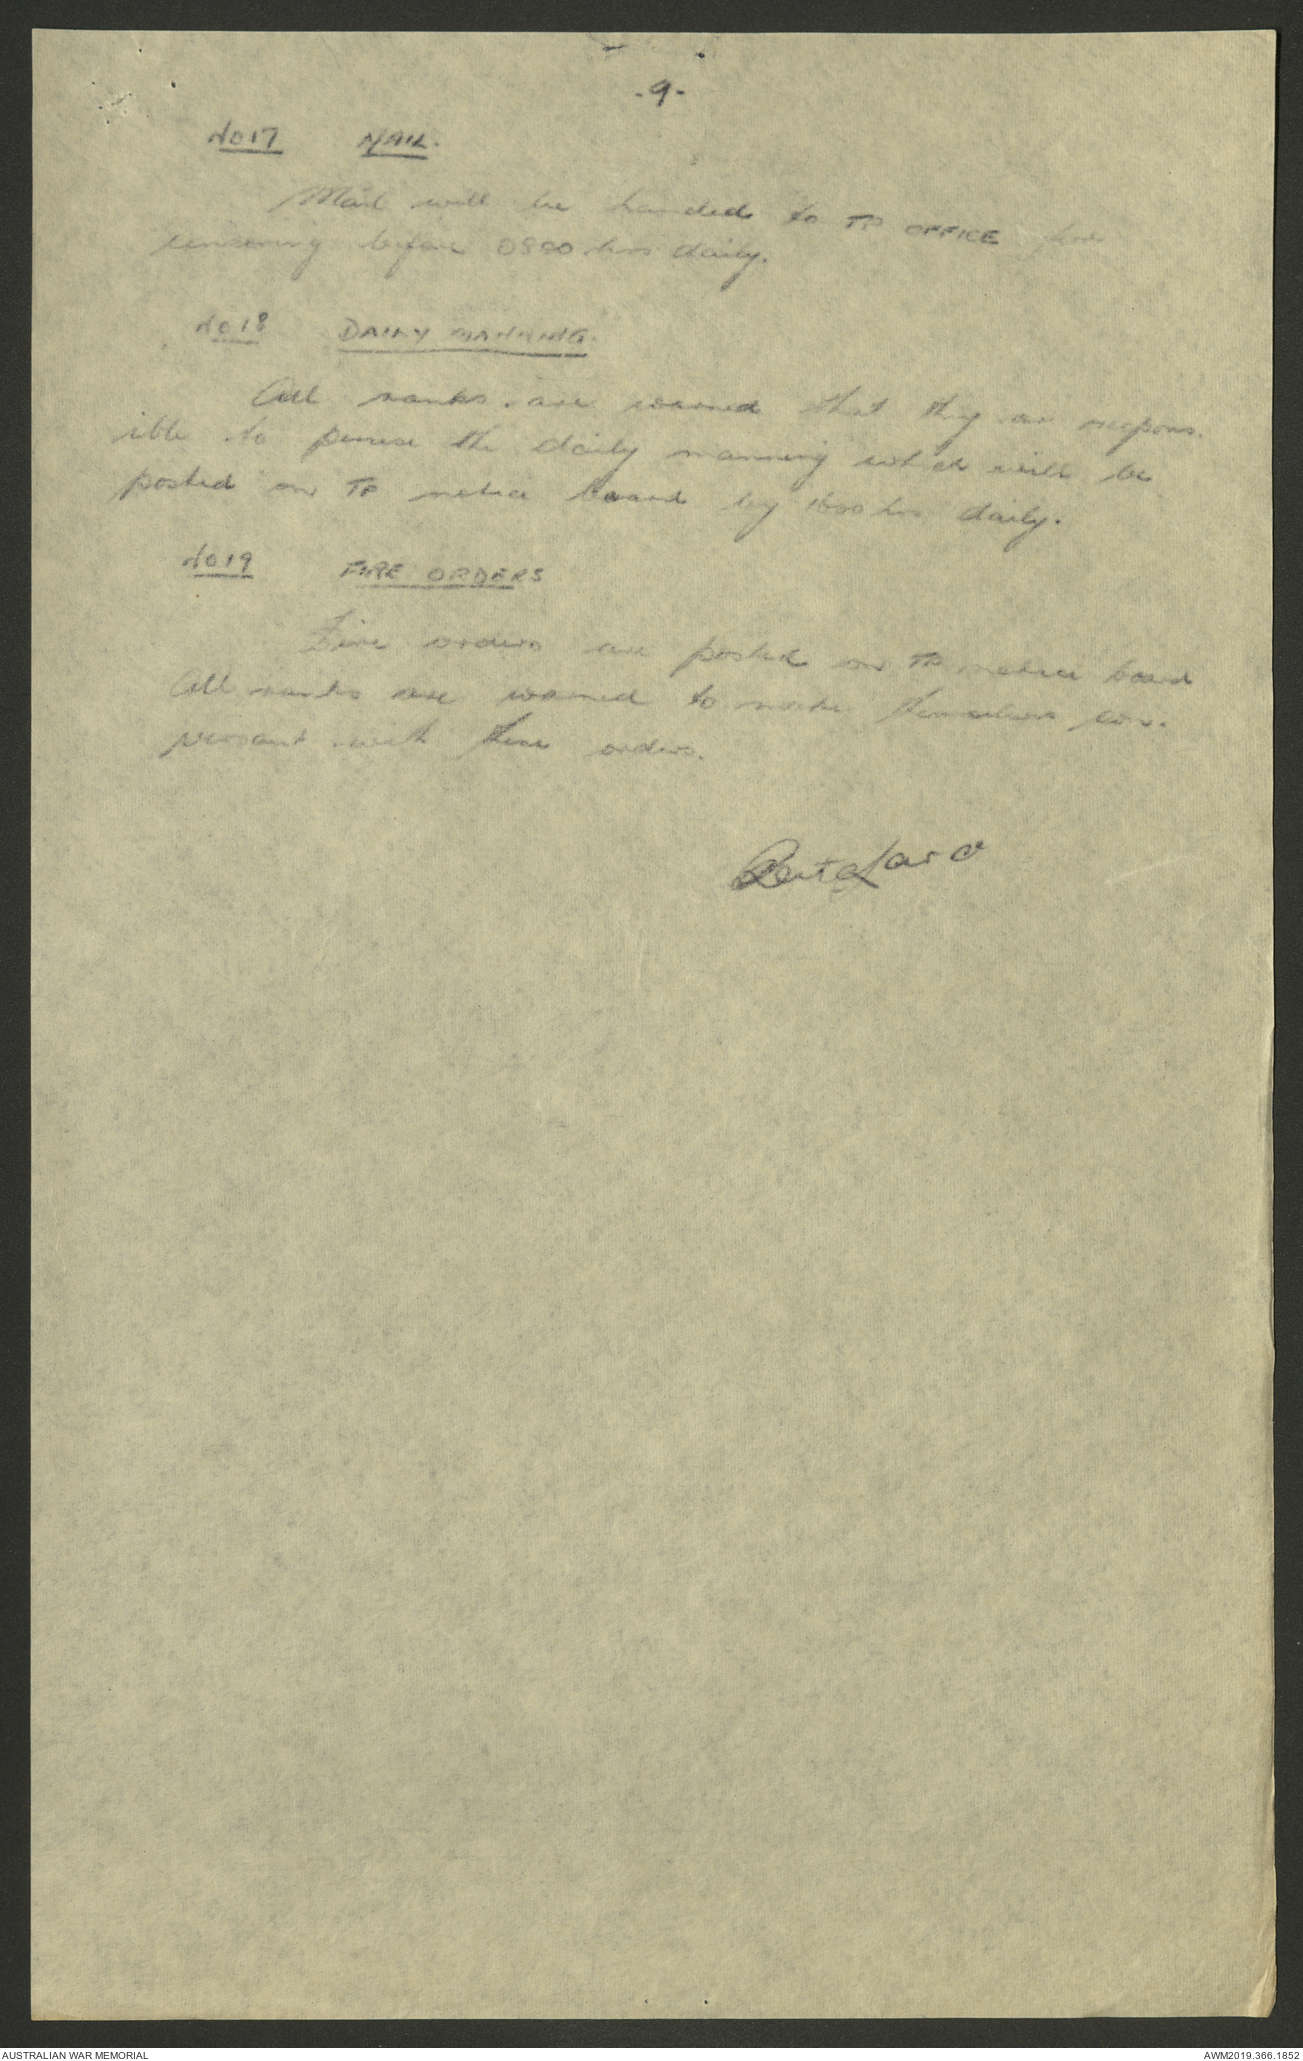 -9-
No 17 MAIL.
Mail will be handed to TP OFFICE for
censoring before 0800 hrs daily.
No 18 DAILY MANNING.
All ranks are warned that they are respons-
ible to peruse the daily manning which will be
posted on TP notice board by 1800 hrs daily.
No 19 FIRE ORDERS
Fire orders are posted on TP notice board
All ranks are warned to make themselves con-
versant with these orders.
AUSTRALIAN WAR MEMORIAL
AWM2019.366.1852